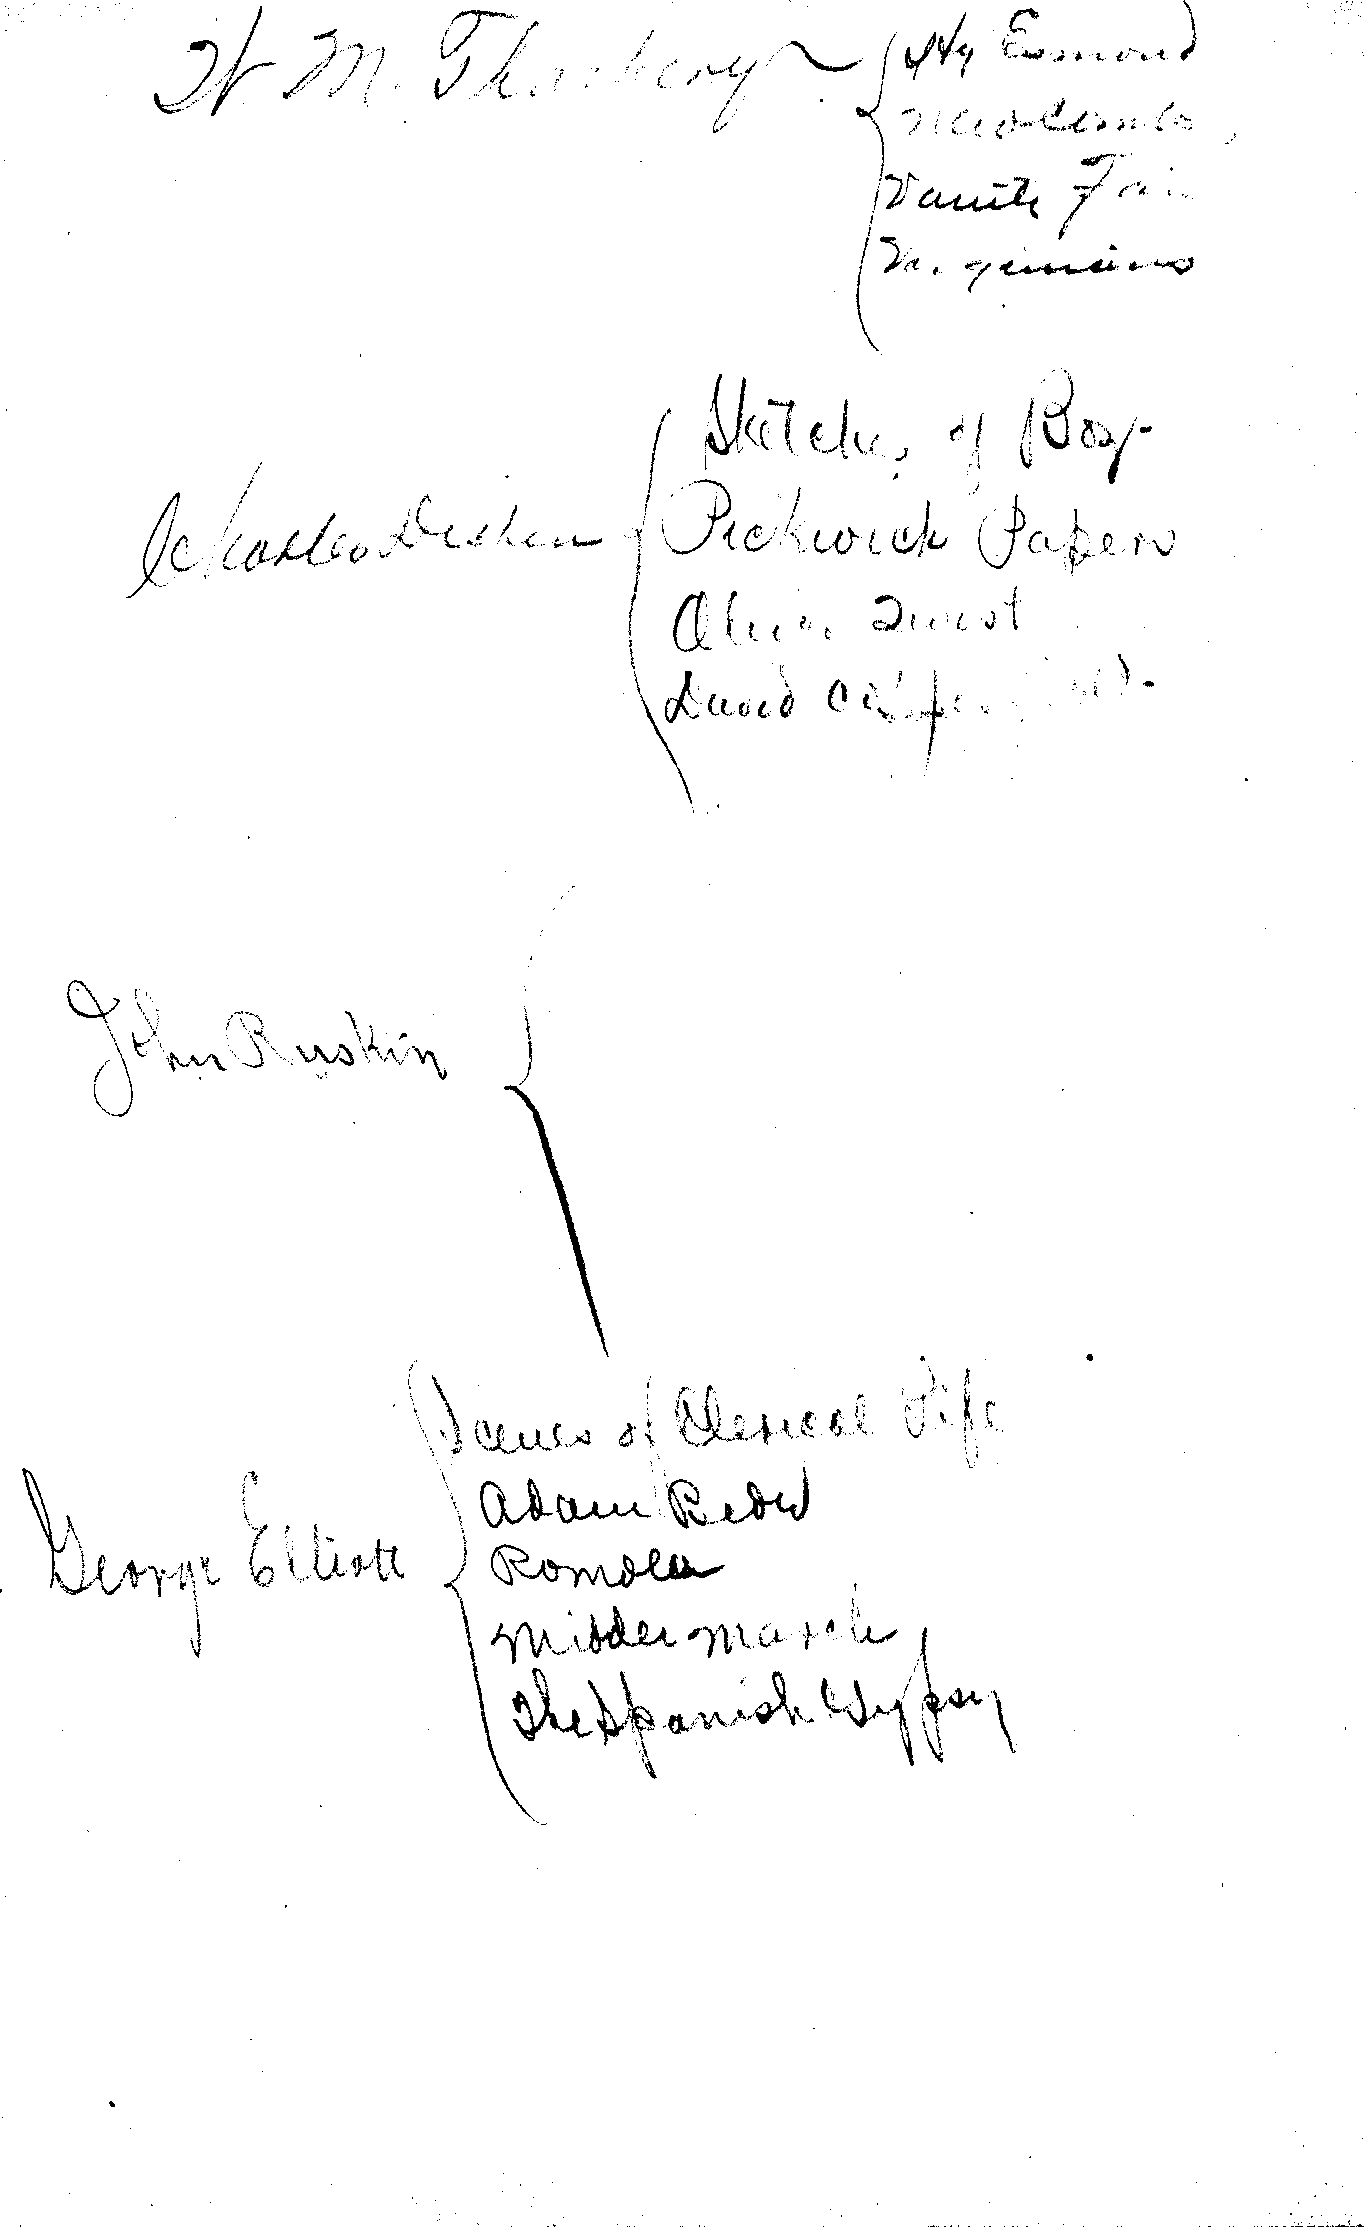 W. M. Thackery
Hy Esmond
Newcombs,
Vanity Fair
Virginians
Charles Dicken
Sketches of Boz-
Pickwick Papers
Oliver Twist
David Copperfield-
John Ruskin
George Elliott
Scenes of Clerical Life
Adam Bede
Romola
Middlemarch
The Spanish Gypsy